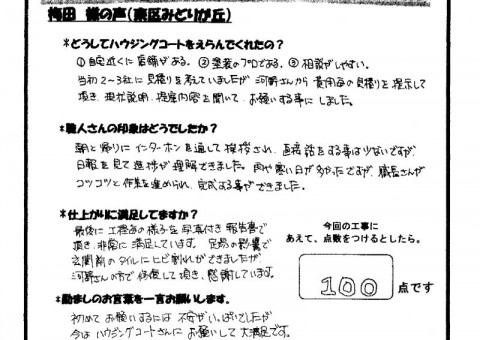 梅田 様の声(東区みどりが丘)
*どうしてハウジングコートをえらんでくれたの?
①自宅近くに店舗がある。②塗装のプロである。③相談がしやすい。
当初2~3社に見積りを考えていましたが 河野さんから 費用毎の見積りを提示して
頂き、現状説明・提案内容を聞いて、お願いする事に しました。
*職人さんの印象はどうでしたか?
朝と帰りに インターホンを通して 挨拶され、直接話をする事は少ないですが、
日報を見て進捗が理解できました。雨や寒い日が多かったですが、職長さんが
コツコツと作業を進められ、完成する事ができました。
*仕上がりに満足してますか?
最後に 工程毎の様子を写真付き 報告書で
頂き、非常に 満足しています。足場の影響で
玄関前のタイルに ヒビ割れができましたが
河野さんの方で修復して頂き、感謝しています。
今回の工事に
あえて、点数をつけるとしたら。
100 点です
*励ましのお言葉を一言お願いします。
初めて お願いするには 不安がいっぱいでしたが
今は ハウジングコートさんに お願いして 大満足です。